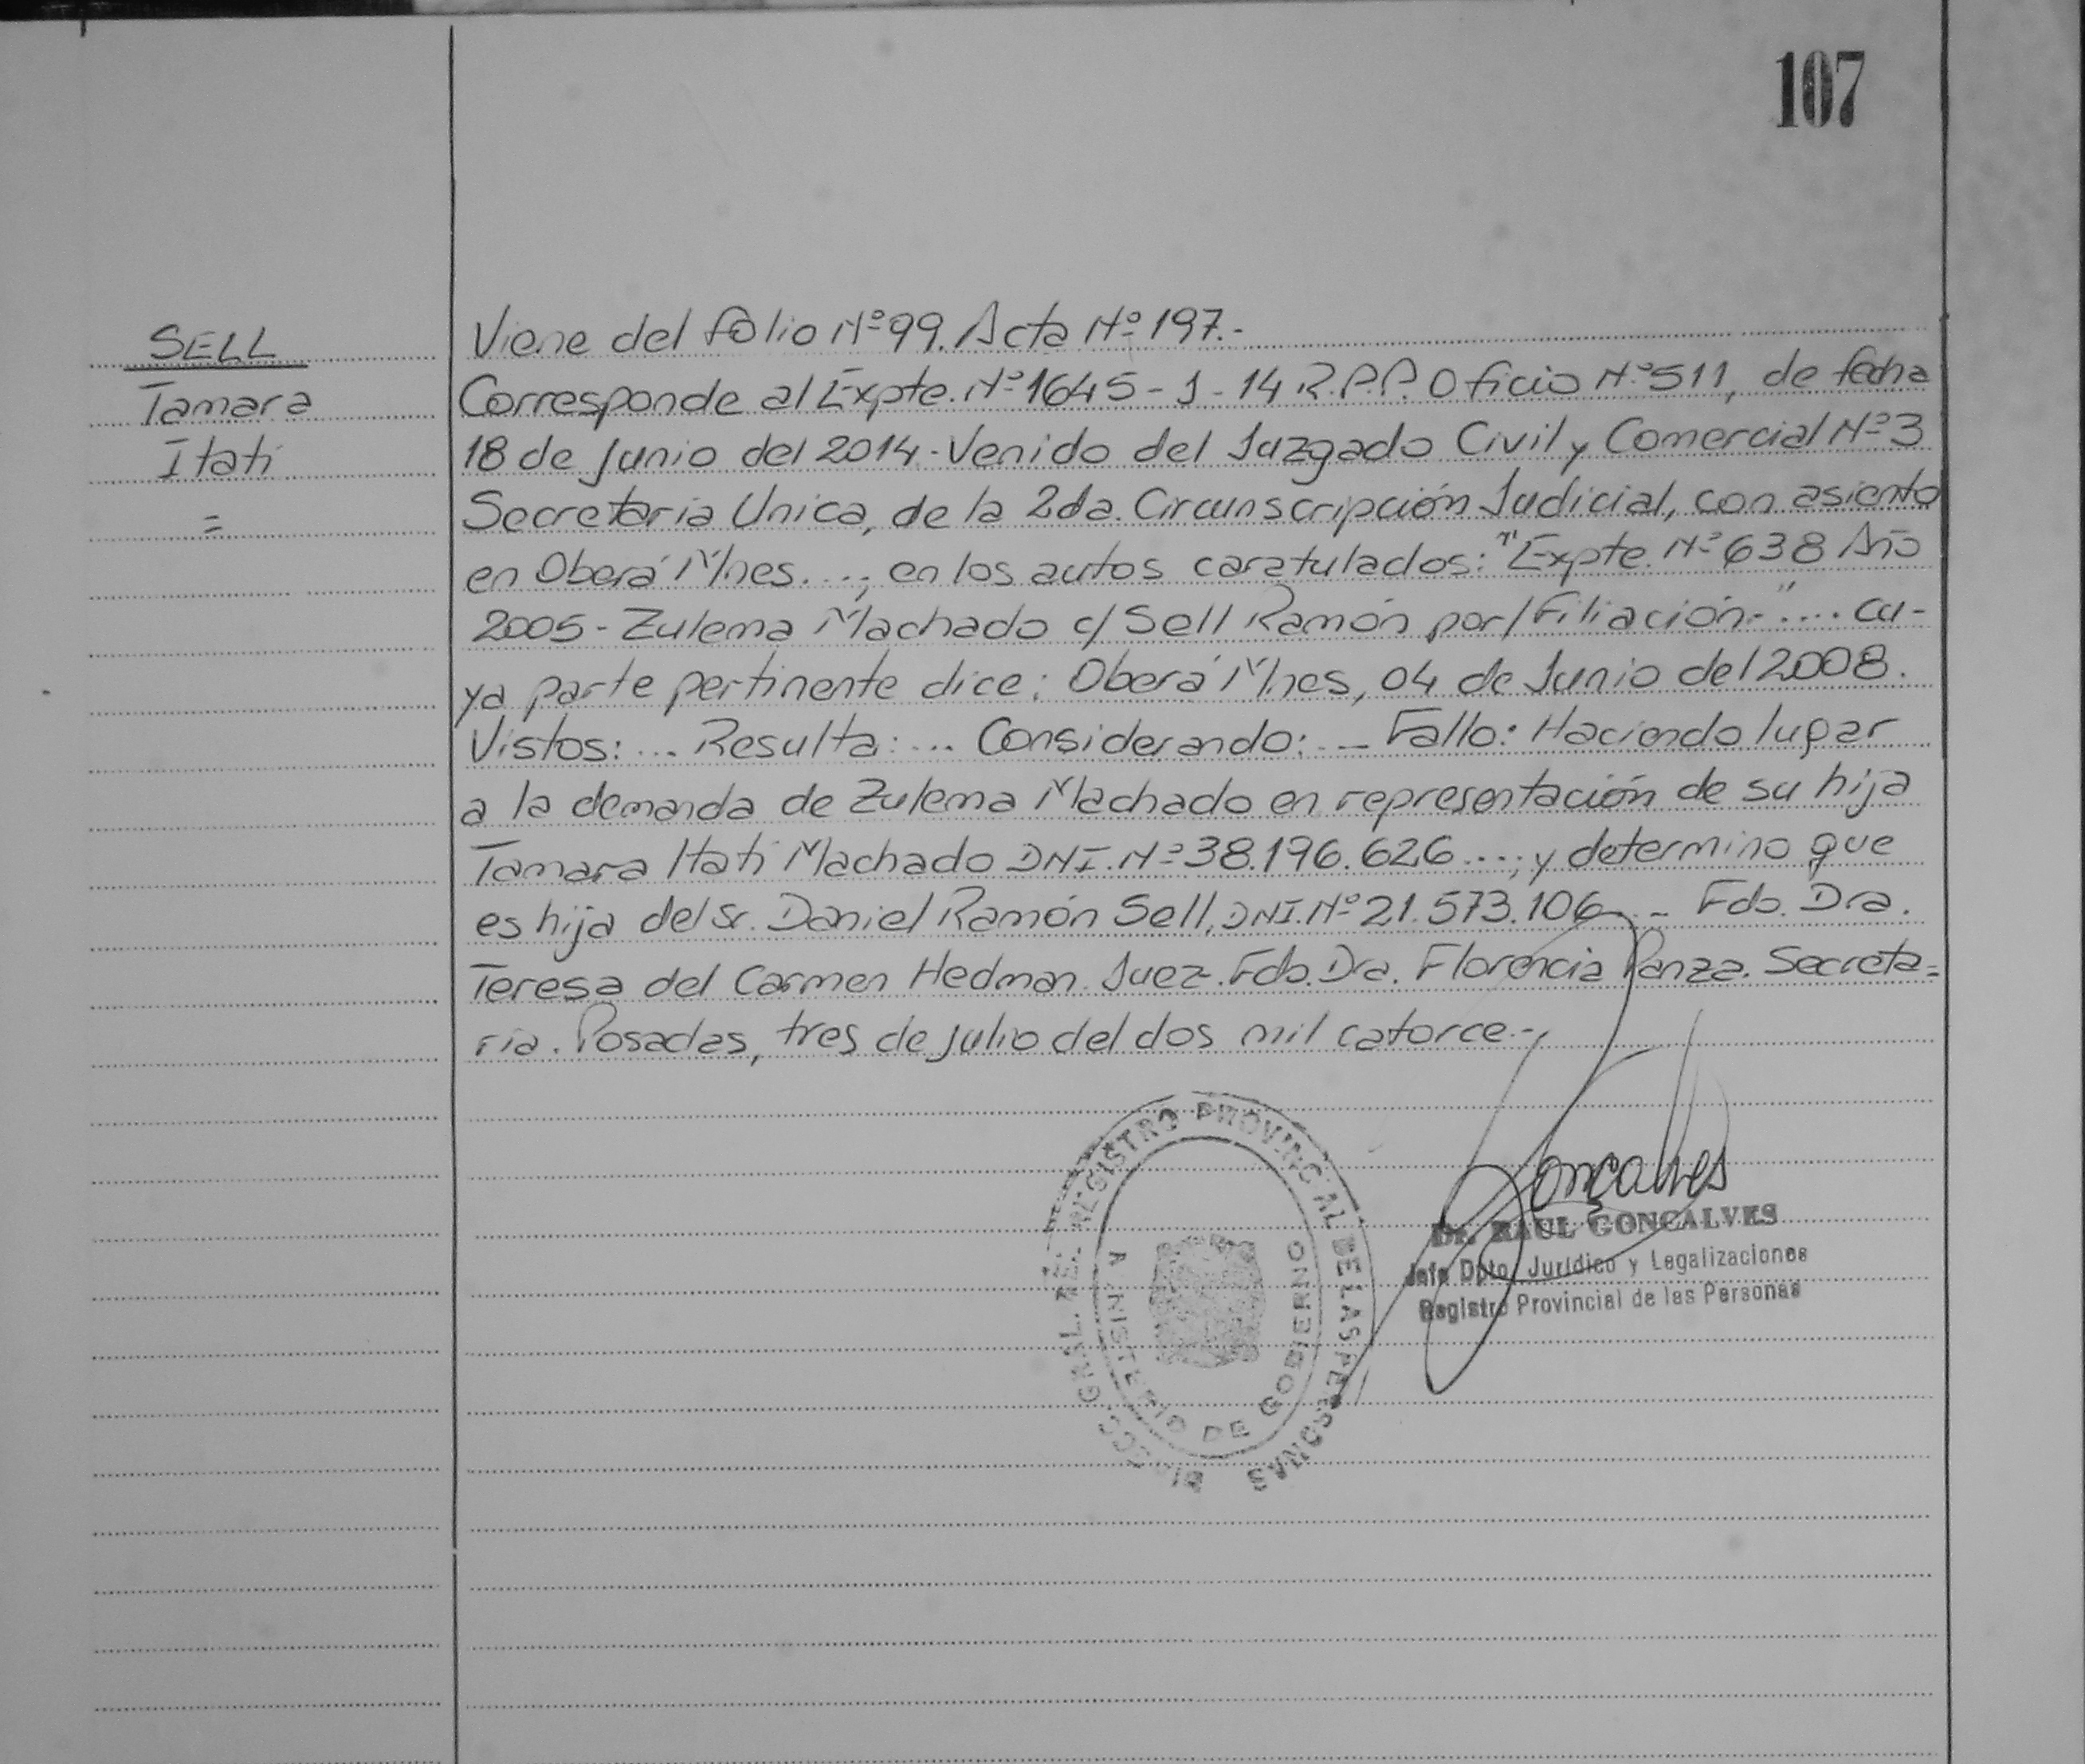 107
SELL
Tamara
Itatí
=
Viene del folio Nº 99. Acta Nº 197.-
Corresponde al Expte. Nº 1645-J-14 R.P.P. Oficio Nº 511, de fecha
18 de Junio del 2014. Venido del Juzgado Civil y Comercial Nº 3
Secretaria Unica, de la 2da. Circunscripción Judicial, con asiento
en Oberá Mnes...., en los autos caratulados: "Expte. Nº 638 Año
2005- Zulema Machado c/ Sell Ramón por/Filiación-".... cu-
ya parte pertinente dice: Oberá Mnes, 04 de Junio del 2008.
Vistos:... Resulta:... Considerando:... Fallo: Haciendo lugar
a la demanda de Zulema Machado en representación de su hija
Tamara Itatí Machado DNI. Nº 38.196.626...; y determino que
es hija del Sr. Daniel Ramón Sell, DNI. Nº 21.573.106... Fdo. Dra.
Teresa del Carmen Hedman. Juez. Fdo. Dra. Florencia Panza. Secreta=
ria. Posadas, tres de julio del dos mil catorce.-
Gonçalves
Dr. RAUL GONCALVES
Jefe Dpto. Jurídico y Legalizaciones
Registro Provincial de las Personas
REGISTRO PROVINCIAL DE LAS PERSONAS
MINISTERIO DE GOBIERNO